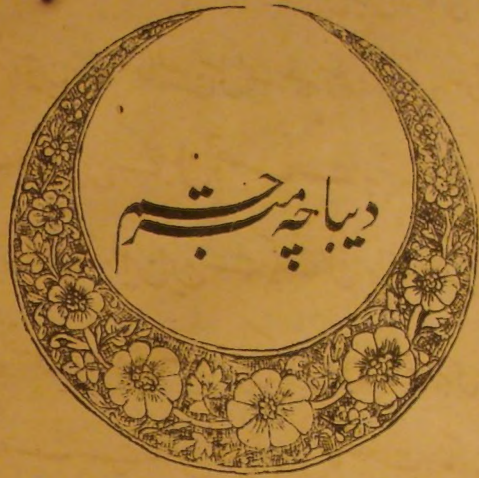 دیباچہ مترجم